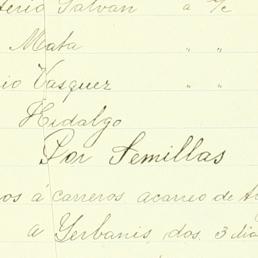 Galvan a %
Mata " "
io Vasquez " "
Hidalgo
Por Semillas
os á carreros acarreo de
a Yerbanis, dos. 3 dia